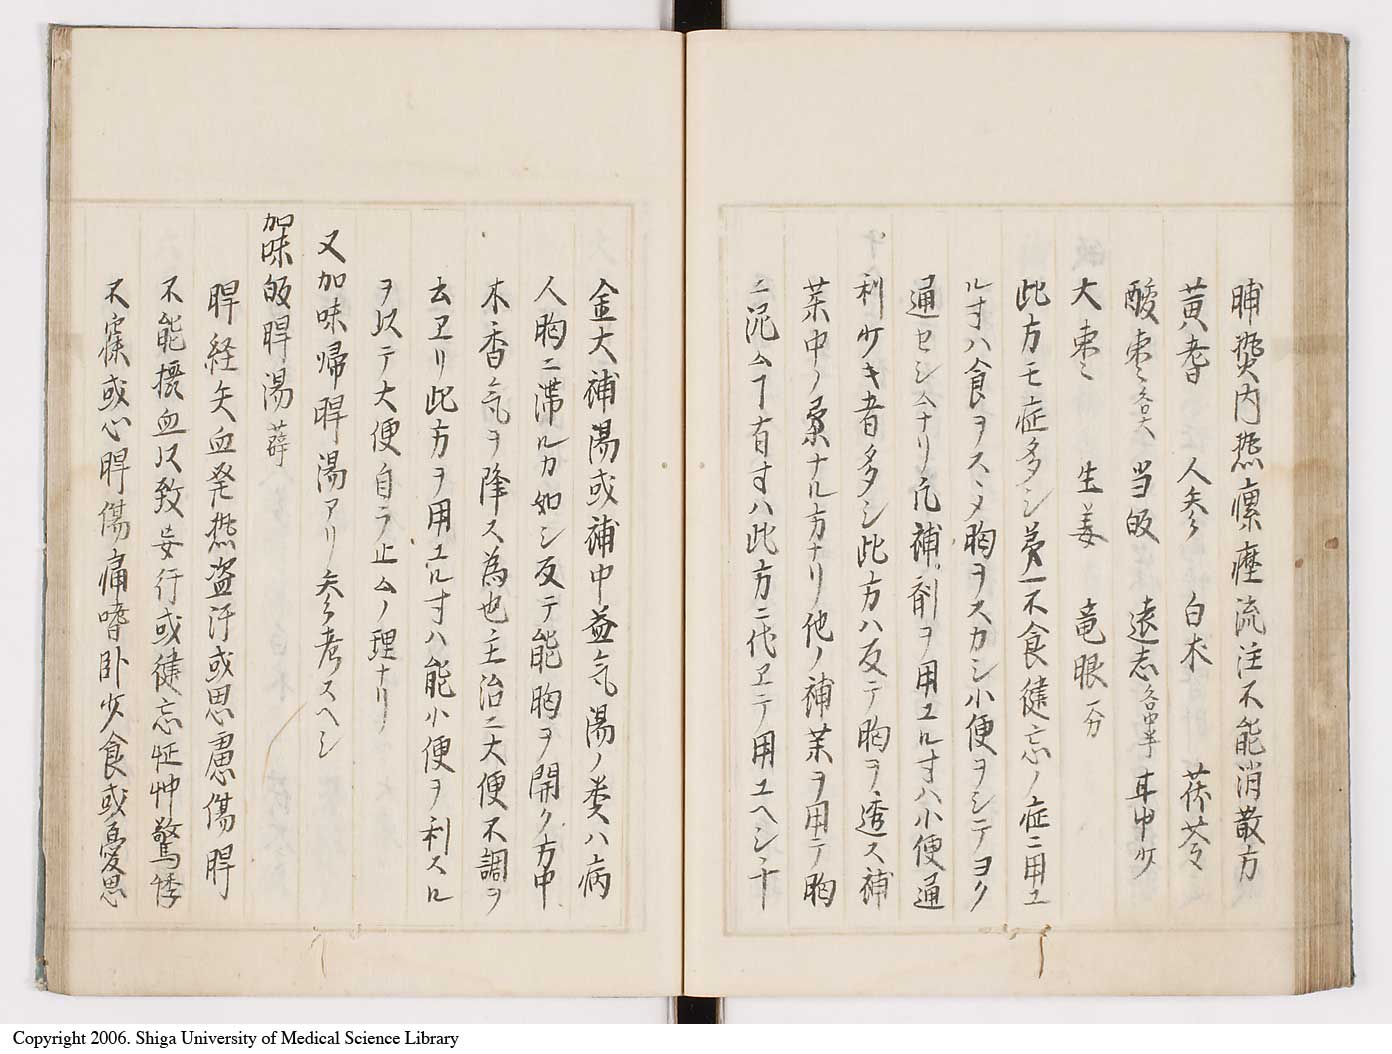 晡熱内熱瘰癧流注不能消散方
黄耆 人参 白朮 茯苓
酸棗各大 当皈 遠志各中半 甘中少
大棗 生姜 竜眼一分
此方モ症多シ第一不食健忘ノ症ニ用ユ
ル寸ハ食ヲスヽメ胸ヲスカシ小便ヲシテヨク
通セシムナリ凢補剤ヲ用ユル寸ハ小便通
利少キ者多シ此方ハ反テ胸ヲ透ス補
薬中ノ ナル方ナリ他ノ補薬ヲ用テ胸
ニ泥ムヿ有寸ハ此方ニ代ヱテ用ユヘシ十
全大補湯或補中益気湯ノ類ハ病
人胸ニ滞ルカ如シ反テ能胸ヲ開ク方中
木香気ヲ降ス為也主治ニ大便不調ヲ
云ヱリ此方ヲ用ユル寸ハ能小便ヲ利スル
ヲ以テ大便自ラ止ムノ理ナリ
又加味帰脾湯アリ参考スヘシ
加味皈脾湯 薛
脾経失血発熱盗汗或思慮傷脾
不能摂血以致妄行或健忘怔忡驚悸
不寐或心脾傷痛嗜卧少食或憂思
Copyright 2006. Shiga University of Medical Science Library